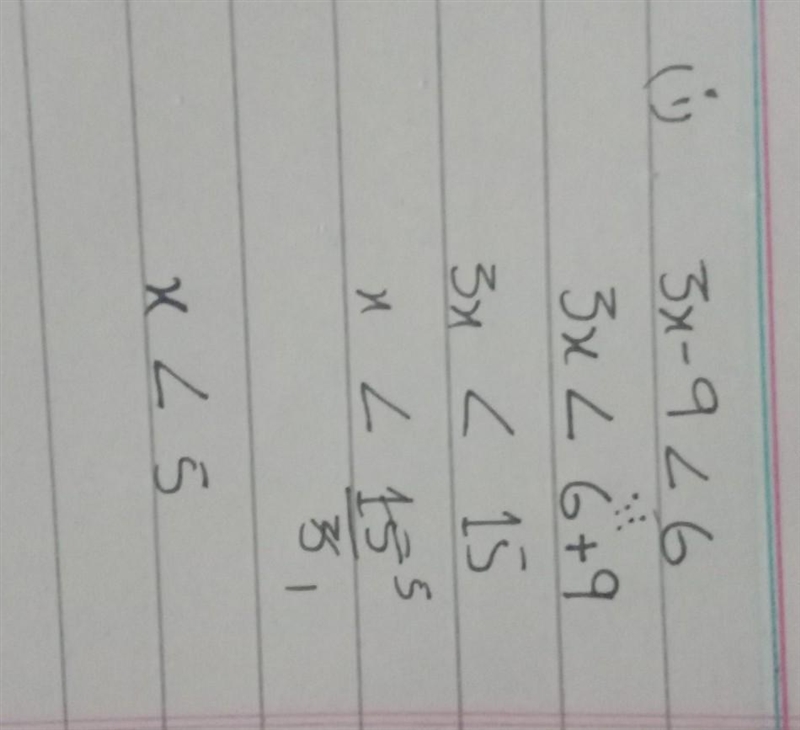 (i) 3x - 9 < 6
3x < 6 + 9
3x < 15
x < 15/3 5 1
x < 5